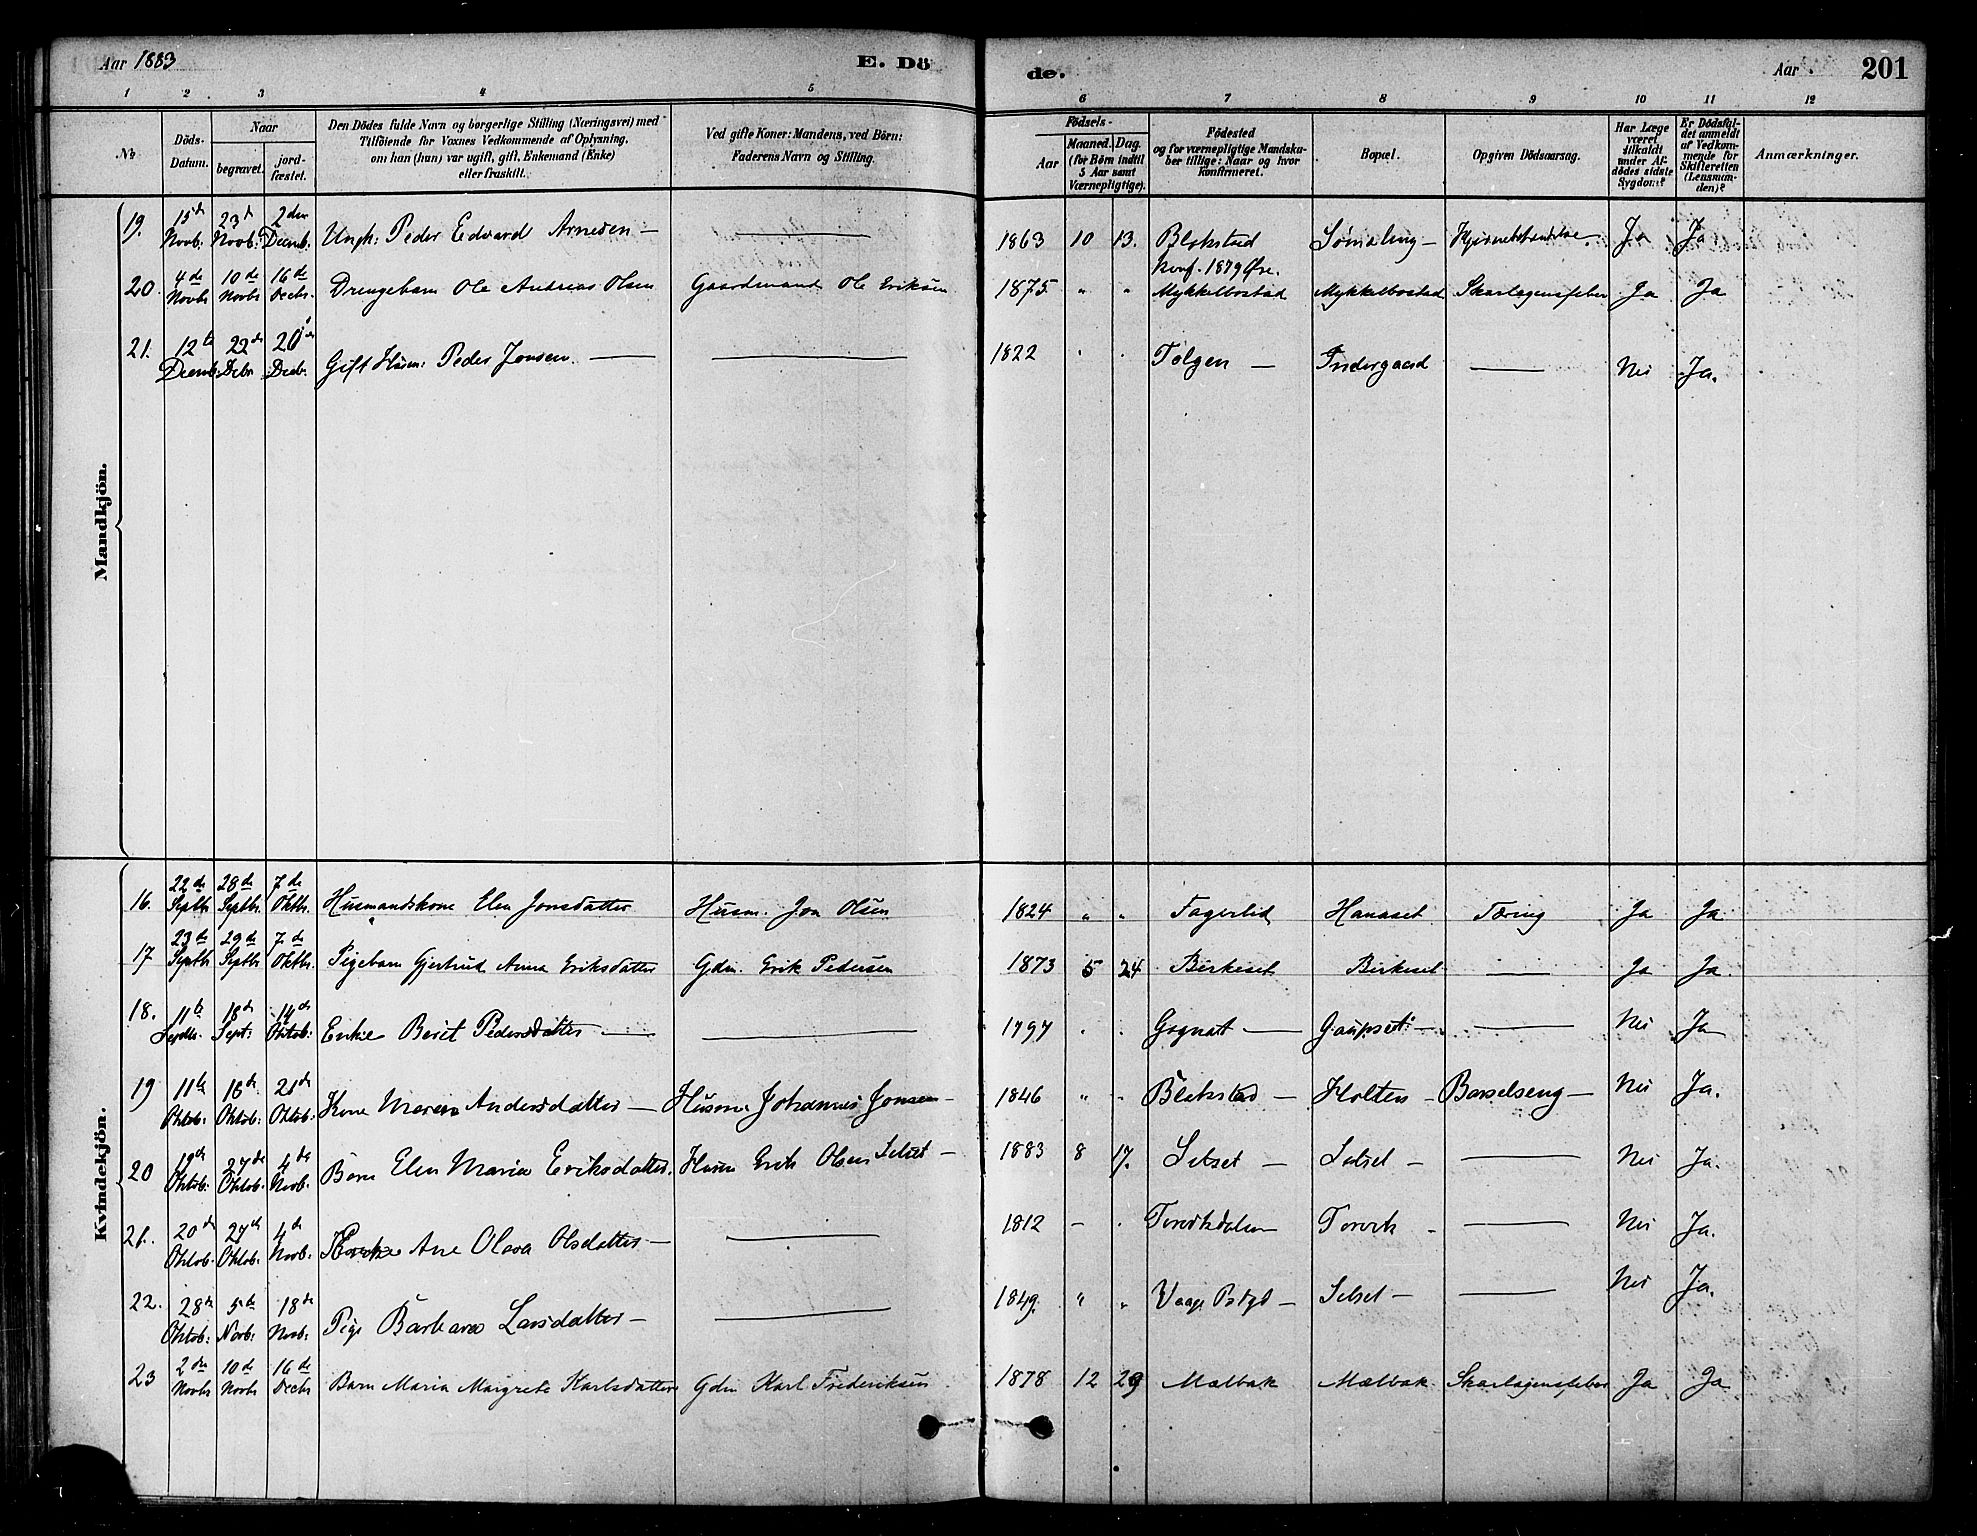 Aar 1883
E. Dö
de.
Aar
201
1 2 3 4 5 6 7 8 9 10 11 12
No
Döds-
Datum.
Naar
begravet.
jord-
fæstet.
Den Dödes fulde Navn og borgerlige Stilling (Næringsvei) med
Tilföiende for Voxnes Vedkommende af Oplysning,
om han (hun) var ugift, gift, Enkemand (Enke)
eller fraskilt.
Ved gifte Koner: Mandens, ved Börn:
Faderens Navn og Stilling.
Födsels-
Aar
Maaned. Dag.
(for Börn indtil
5 Aar samt
Værnepligtige).
Födested
og for værnepligtige Mandska-
ber tillige: Naar og hvor
konfirmeret.
Bopæl.
Opgiven Dödsaarsag.
Har Læge
været
tilkaldt
under Af-
dödes sidste
Sygdom?
Er Dödsfal-
det anmeldt
af Vedkom-
mende for
Skifteretten
(Lensman-
den)?
Anmærkninger.
Mandkjön.
19. 15de Novb: 23de Novb: 2den Decemb. Ungk: Peder Edvard Arnesen — 1863 10 13. Blekstad Ja Ja
Konf. 1879 Øre.
20. 4de Novbr 10de Novbr 16de Decbr. Drengebarn Ole Andreas Olsen Gaardmand Ole Eriksen 1875 " " Mykkelbostad Mykkelbostad Skarlagensfeber Ja Ja
21. 12te Decemb. 22de Debr. Decbr. Gift Husm: Peder Jonsen. — 1822 " " Tolgen — Indergaard — Nei Ja.
Kvindekjön.
16. 22de Septbr 28de Septbr. 7de Oktbr. Husmandskone Elen Jonsdatter Husm. Jon Olsen 1824 " " Fagerlid Hanaset Tæring Ja Ja
17 23de Septbr 29de Septbr 7de Oktbr. Pigebarn Gjertrud Anna Eriksdatter Gdm. Erik Pedersen 1873 5 24 Birkeset Birkeset — Ja Ja
18. 11te Septbr. 18de Sept: 14de Oktob: Enke Berit Pedersdatter — 1797 " " Gognat — Gaupset — Nei Ja
19 11te Oktob: 18de Oktob: 21de Oktob: Kone Maren Andersdatter — Husm. Johannes Jonsen — 1846 " " Blekstad — Holten — Barselseng — Nei Ja.
20 19de Oktob: 27de Oktob. 4de Novb: Barn Elen Maria Eriksdatter. Husm Erik Olsen Selset — 1883 8 17. Selset — Selset — Nei Ja.
21. 20de Oktob. 27de Oktob: 4de Novb: Enke Ane Olava Olsdatter — 1812 — " Torvikdalen Torvik — Nei Ja.
22. 28de Oktob: 5te Novb: 18de Novb: Pige Barbara Larsdatter — 1849. " " Vaage — Selset — Nei Ja.
23 2den Novbr 10de Novbr 16de Decbr Barn Maria Margrete Karlsdatter Gdm Karl Frederiksen 1878 12 29 Mælbak Mælbak Skarlagensfeber Ja Ja